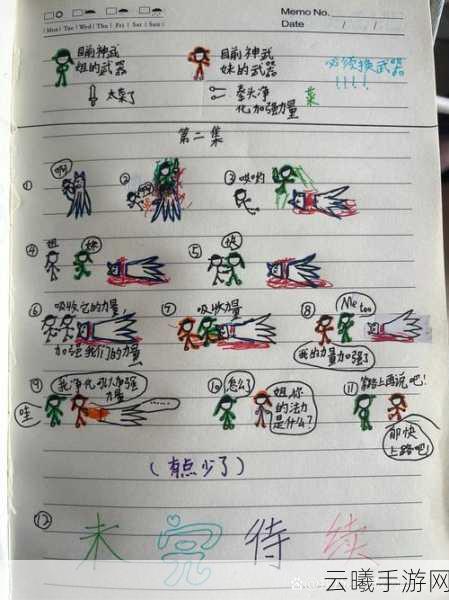 Memo No.
Mon Tue Wed Thu Fri Sat Sun
Date / /
目前神武
姐的武器
目前神武
妹的武器
必须换武器
!!!!!
太菜了
拳头净
化加强力量
菜
第二集
①
②
③
④ 姐 妹
⑤
⑥ 吸收它的力量,
加强我们的力量
⑦ 吸收力量
⑧ Me too
我的力量加强了
我净化以加强
力量
哇
......
⑩ 怎么了
姐你
的法力
是什么?
⑪ 路上再说吧!
那快
上路吧!
(有点少了)
⑫ 未完待续
云曦手游网